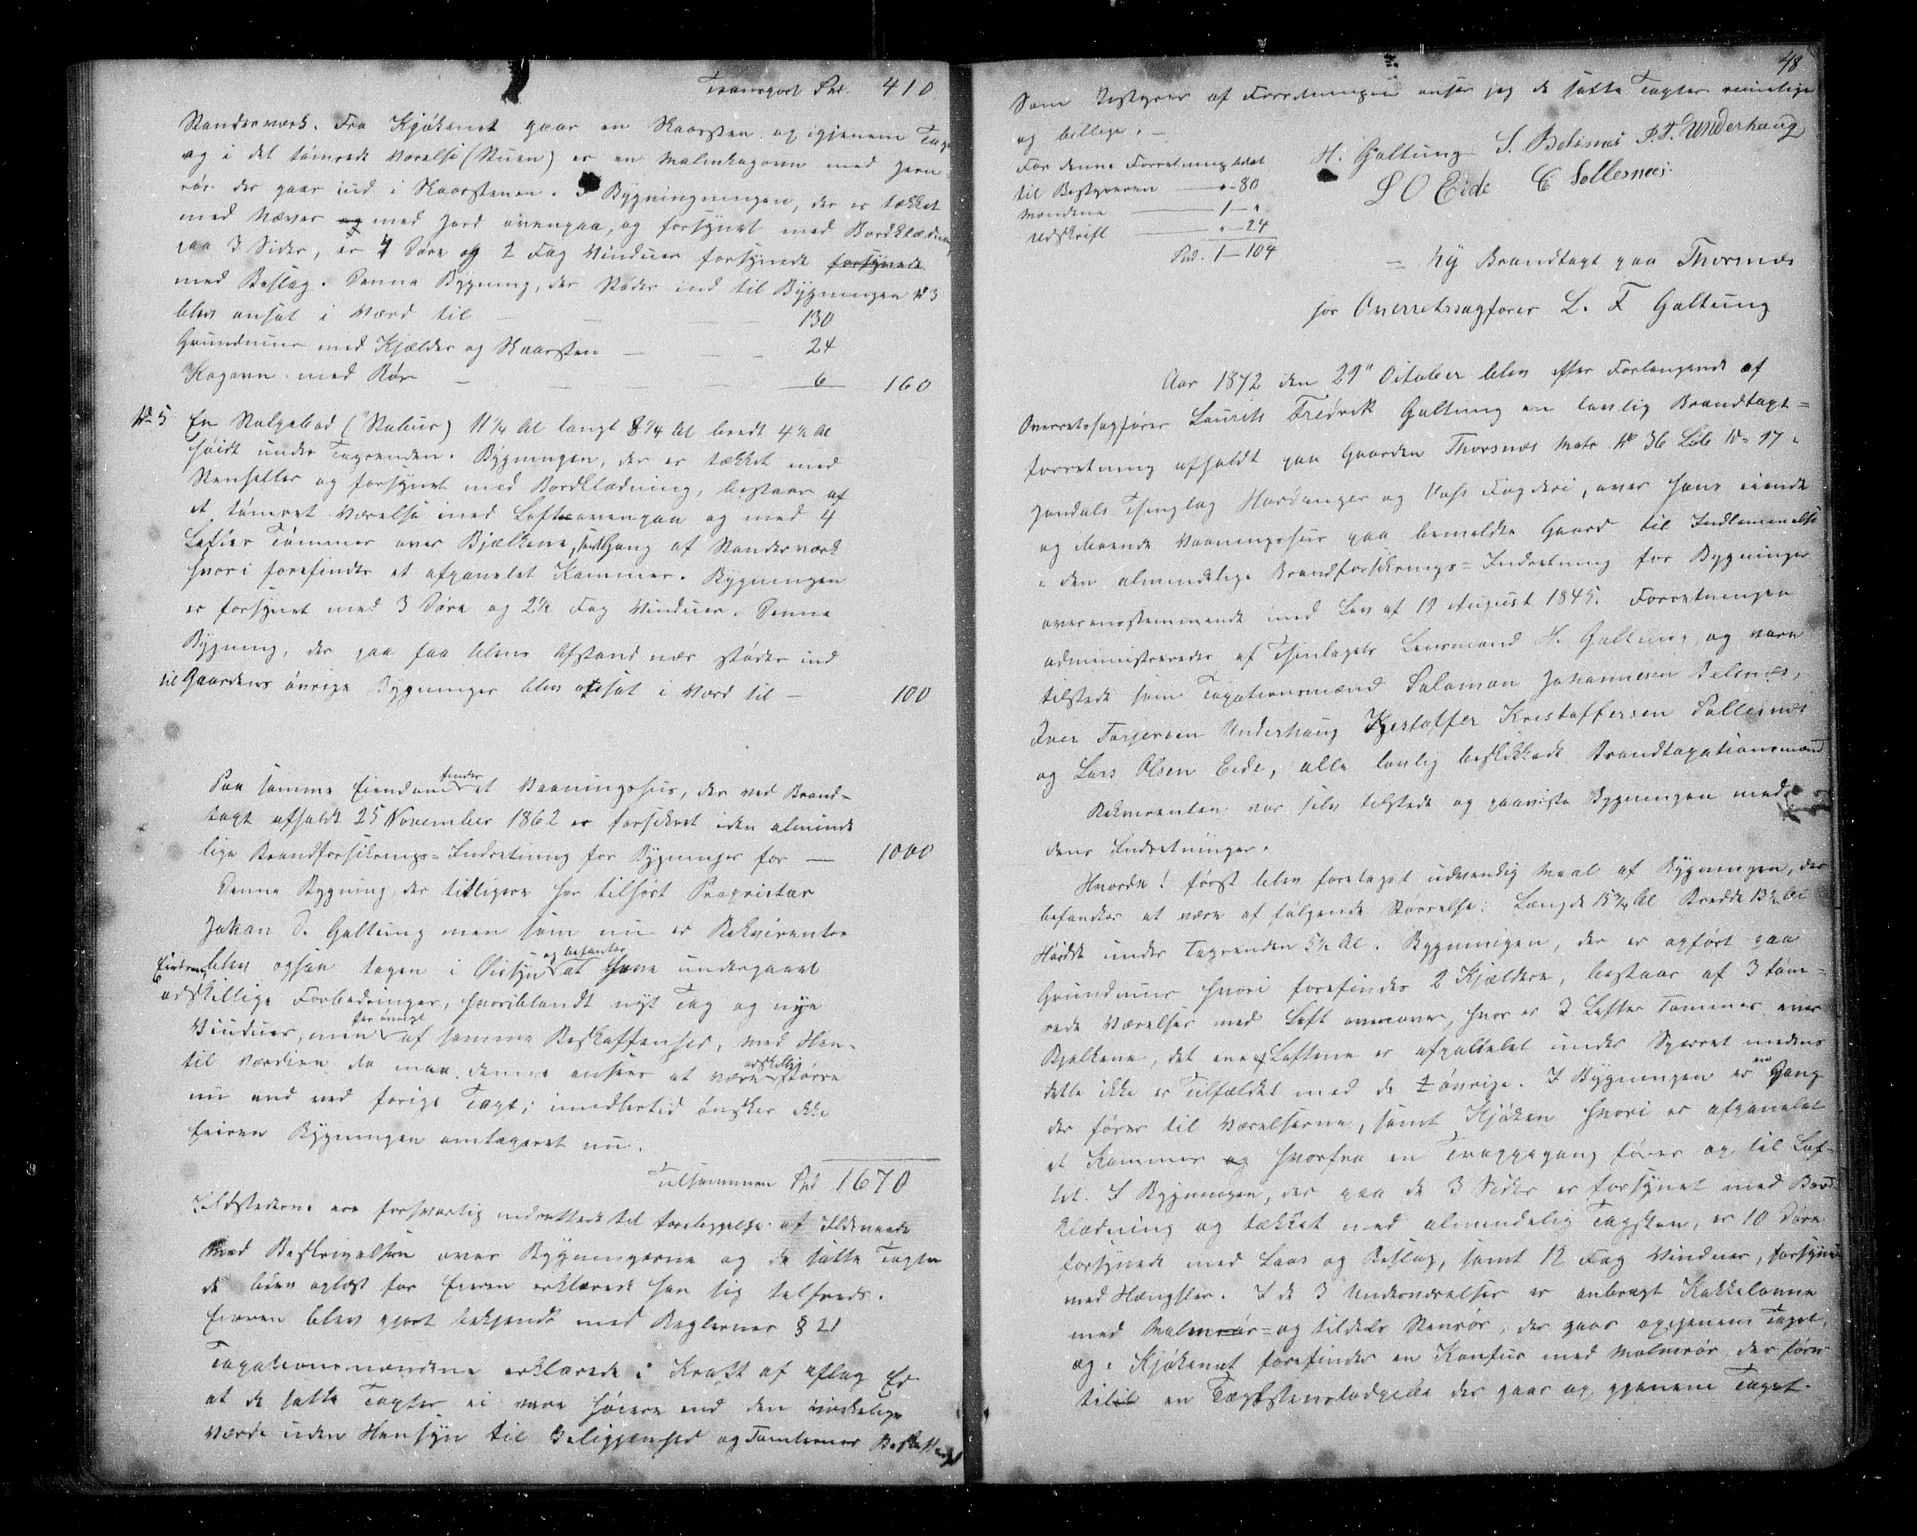 Transport Spd. 410.
Standerværk. Fra Kjøkenet gaar en Skaarsten op igjenem Tag
og i det tømrede Værelse (Stuen) er en Malmkagovn med Jern
rør der gaar ind i Skaarstenen. I Bygningningen, der er tækket
med Næver og med Jord ovenpaa, og forsynet med Bordklædning
paa 3 Sider, er 4 Døre og 2 Fag Vinduer forsynede forsynede
med Beslag. Denne Bygning, der støder ind til Bygningen No 3
blev ansat i Værd til — — — 130
Grundmur med Kjælder og Skaarsten — — — 24
Kagovn med Rør — — — — 6 160
No 5 En Stolpebod ("Stabur) 11 1/4 Al langt 8 1/4 Al bredt 4 1/2 Al
høidt under Tagrenden. Bygningen, der er tækket med
Stenheller og forsynet med Bordklædning, bestaar af
et tømret Værelse med Loft ovenpaa og med 4
Lefter Tømmer over Bjælkene, samt Gang af Standerværk
hvori forefindes et afpanelet Kammer. Bygningen
er forsynet med 3 Døre og 2 1/2 Fag Vinduer. Denne
Bygning, der paa faa Alens Afstand nær støder ind
til Gaardens øvrige Bygninger blev ansat i Værd til — 100
Paa samme Eiendom findes et Vaaningshus, der ved Brand-
taxt afholdt 25 November 1862 er forsikret i den alminde
lige Brandforsikrings-Indretning for Bygninger for — 1000
Denne Bygning, der tidligere har tilhørt Proprietær
Johan S. Galtung men som nu er Rekvirentens
Eiendom, blev ogsaa tagen i Øiesyn og befandtes at have undergaaet
adskillige Forbedringer, hvoriblandt nyt Tag og nye
Vinduer, men for øvrigt af samme Beskaffenhed, med Hen-
til Værdien da maa denne ansees at være adskillig større
nu end ved forige Taxt; imidlertid ønsker ikke
Eieren Bygningen omtaxeret nu.
Tilsammen Spd 1670
Ildstederne ere forsvarlig indrettede til forebyggelse af Ildsvaade
Med Beskrivelsen over Bygningerne og de satte Taxter
de blev oplæst for Eieren erklærede han sig tilfreds.
Eieren blev gjort bekjendt med Reglernes § 21
Taxationsmændene erklærede i Kraft af aflag Ed
at de satte Taxter ei vare høiere end den virkelige
Værdi uden Hensyn til Beliggenhed og Tomternes Beskaffenhed
48
Som Bestyrer af Forretningen anser jeg de satte Taxter rimelige
og billige. —
For denne Forretning betalt
til Bestyreren — " - 80
Mændene — 1 — "
Udskrift — " — 24
Spd. 1 — 104
H. Galtung. S. Belsnæs I. T. Underhaug
L O Eide C Sollesnæs.
= Ny Brandtaxt paa Thorsnæs
for Overretssagfører L. F Galtung
Aar 1872 den 29" October blev efter Forlangende af
Overretssagfører Laurits Fredrik Galtung en lovlig Brandtaxt=
forretning afholdt paa Gaarden Thorsnæs Matr No 36 Lb No 97 i
Jondals Thinglag Hardanger og Voss Fogderi, over hans eiende
og iboende Vaaningshus paa bemeldte Gaard til Indlemmelse
i den almindelige Brandforsikrings=Indretning for Bygninger
overensstemmende med Lov af 19 August 1845. Forretningen
administreredes af Thinlagets Lensmand H. Galtung, og vare
tilstede som Taxationsmænd Salomon Johannesen Belsnæs,
Iver Torjersen Underhaug Kristoffer Kristoffersen Sollesnæs
og Lars Olsen Eide, alle lovlig beskikkede Brandtaxationsmænd
Rekvirenten var selv tilstede og paaviste Bygningen med
dens Indretninger.
Hvorda! først blev foretaget udvendig Maal af Bygningen, der
befandtes at være af følgende Størrelse: Længde 15 3/4 Al Bredde 13 1/2 Al
Høide under Tagrenden 5 1/2 Al. Bygningen, der er opført paa
Grundmur hvori forefindes 2 Kjældere, bestaar af 3 tøm=
rede Værelser med Loft ovenover, hvor er 3 Lefter Tømmer over
Bjælkene, det ene af Loftene er afpallelet under Sperret medens
dette ikke er Tilfældet med de 2 øvrige. I Bygningen er en Gang
der fører til Værelserne, samt Kjøken hvori er afpanelet
et Kammer og hvorfra en Trappegang fører op til Lof-
tet. I Bygningen, der paa de 3 Sider er forsynet med Bord
klædning og tækket med almindelig Tagsten, er 10 Døre
forsynede med Laas og Beslag, samt 12 Fag Vinduer, forsynede
med Hængsler. I de 3 Underværelser er anbragt Kakkelovne
med Malmrør= og tildels Stenrør, der gaar op gjenem Taget,
og i Kjøkenet forefindes en Komfur med Malmrør der fører
til en Teglstensladpibe der gaar op gjenem Taget.